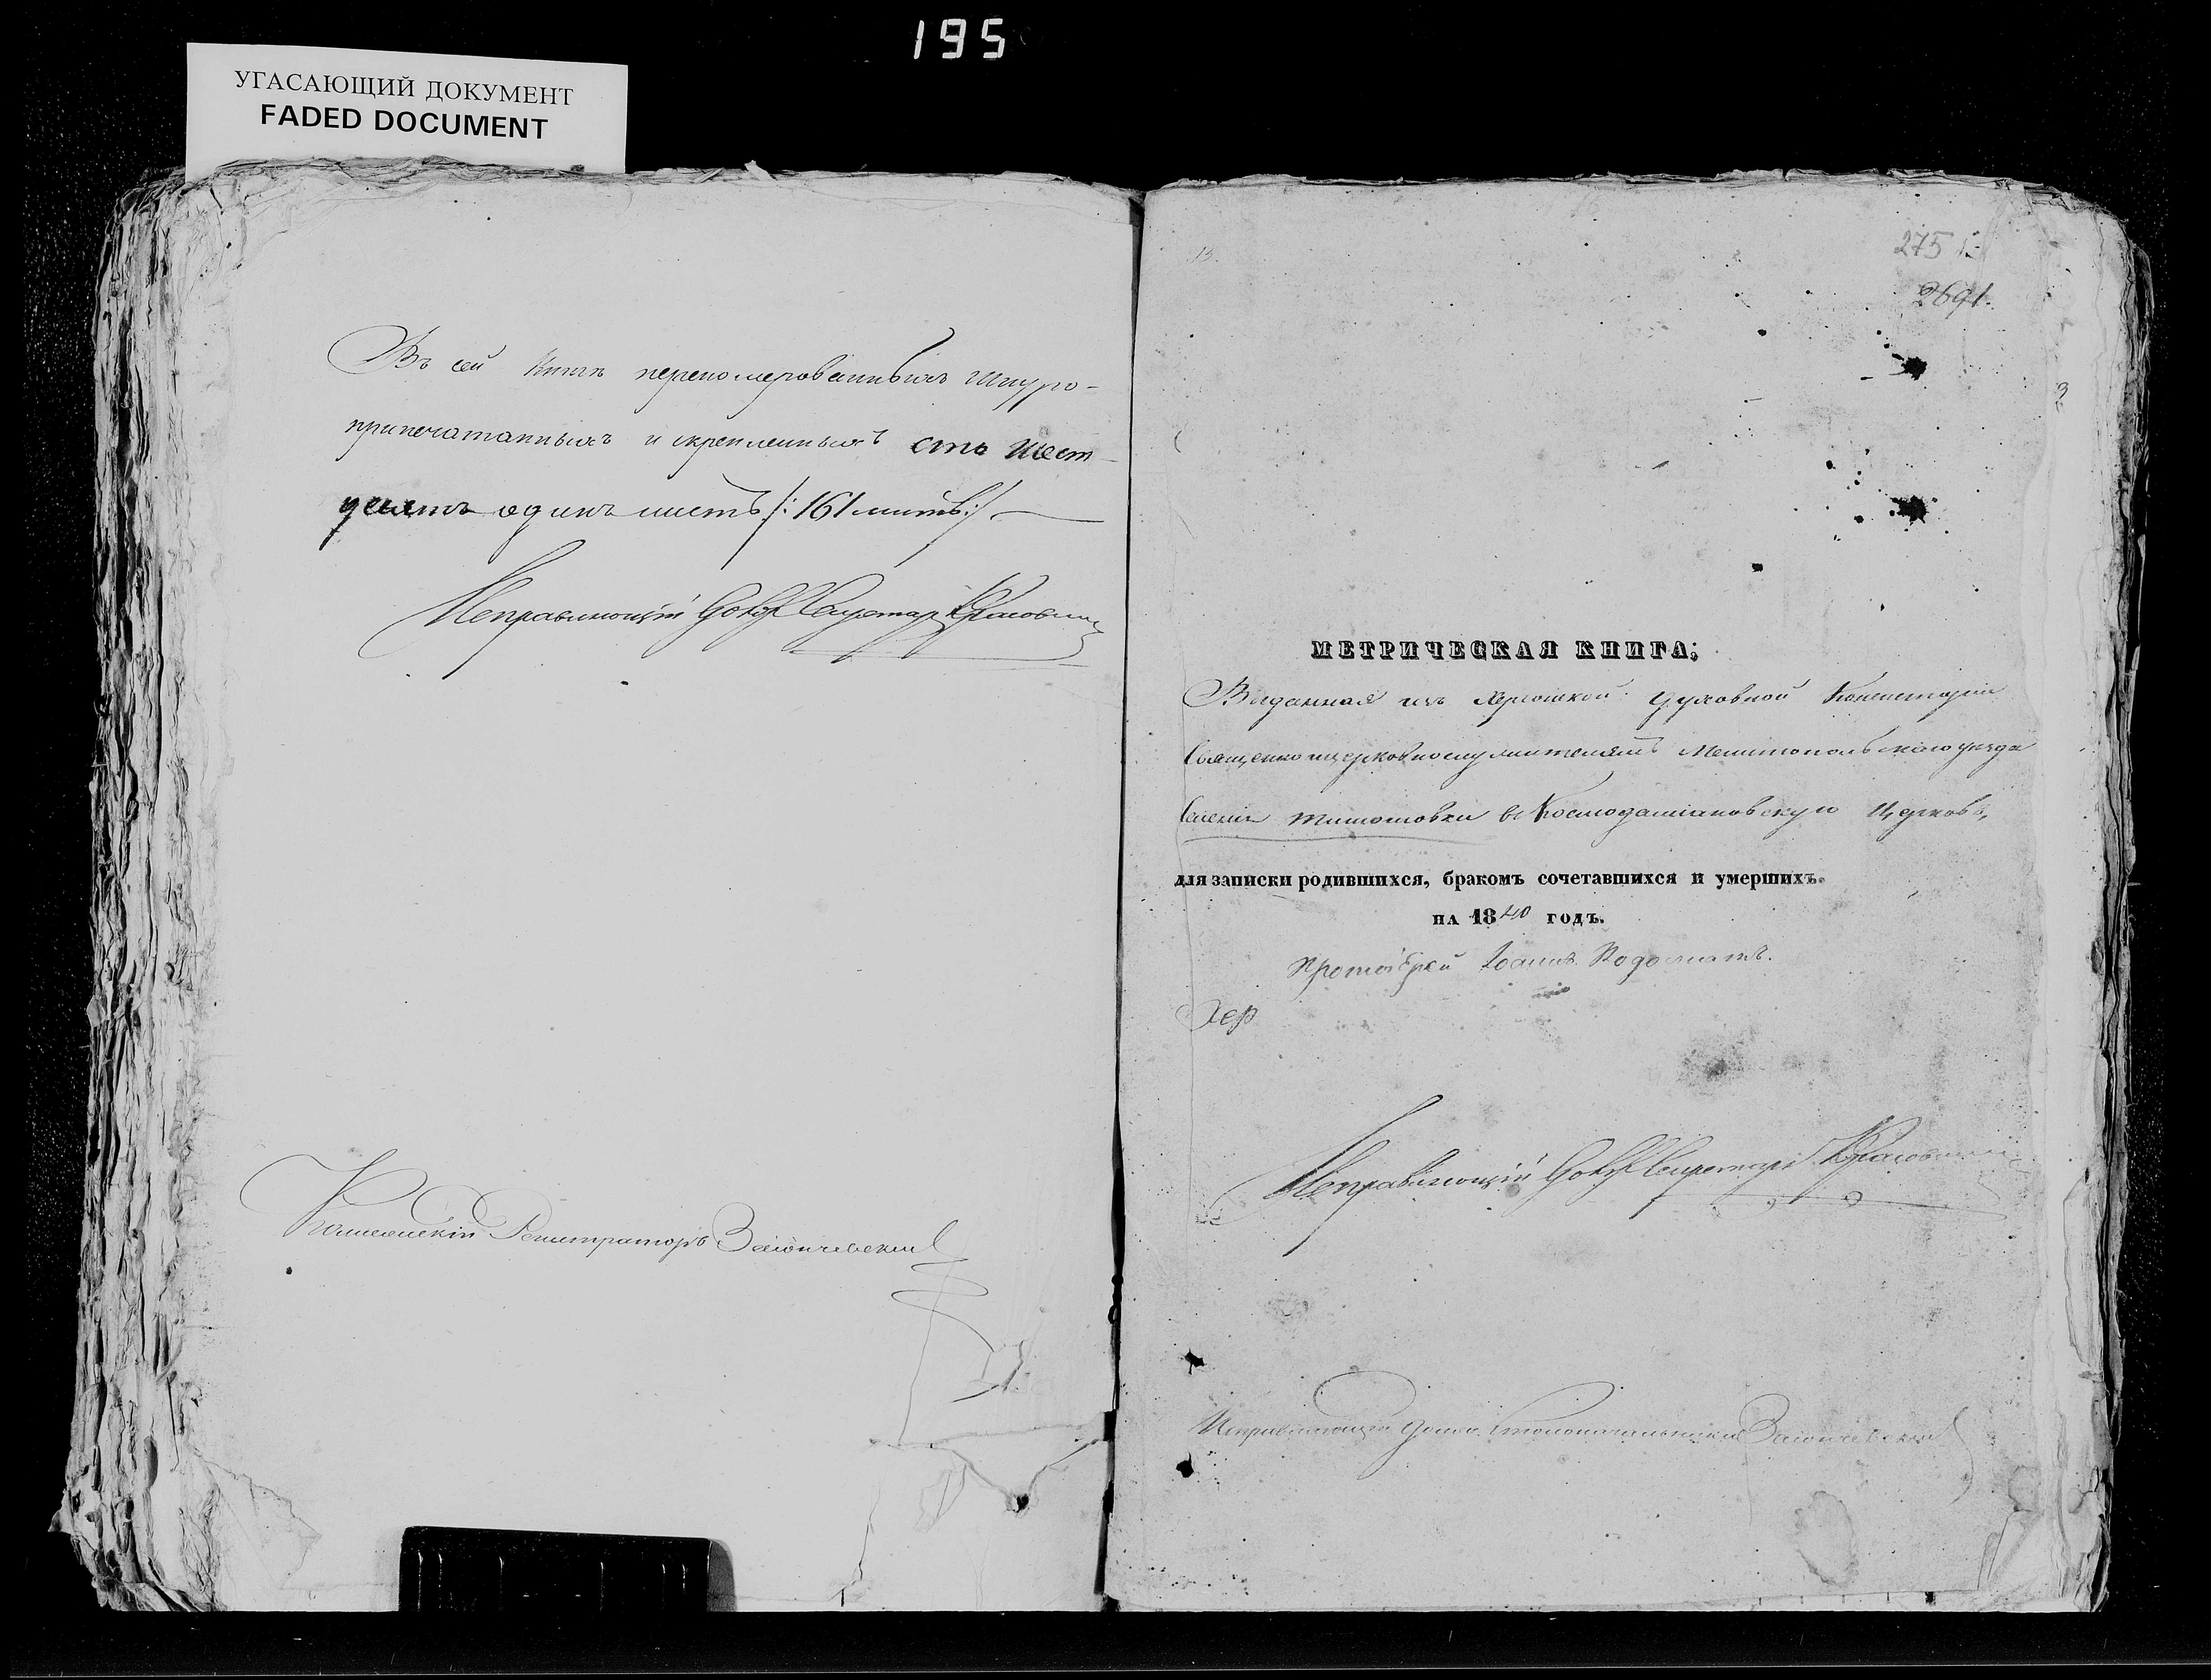 195
УГАСАЮЩИЙ ДОКУМЕНТ
FADED DOCUMENT
Въ сей Книгѣ перенумерованныхъ шнуро-
припечатанныхъ и скрепленныхъ сто шест-
десятъ одинъ листъ /: 161 листъ :/
Исправляющій Долж Секретаря
Коллежскій Регистраторъ Заіончевскій
13.
275
2691.
3
МЕТРИЧЕСКАЯ КНИГА;
Выданная изъ Херсонской Духовной Консисторіи
Священноцерковнослужителямъ Мелитопольскаго уѣзда
Селенія Тимошовки в Космодаміановскую Церковь,
для записки родившихся, бракомъ сочетавшихся и умершихъ.
НА 1840 ГОДЪ.
Протоіерей Іоаннъ
Хер
Исправляющій Долж Секретаря
Исправляющій Долж. Столоначальника Заіончевскій